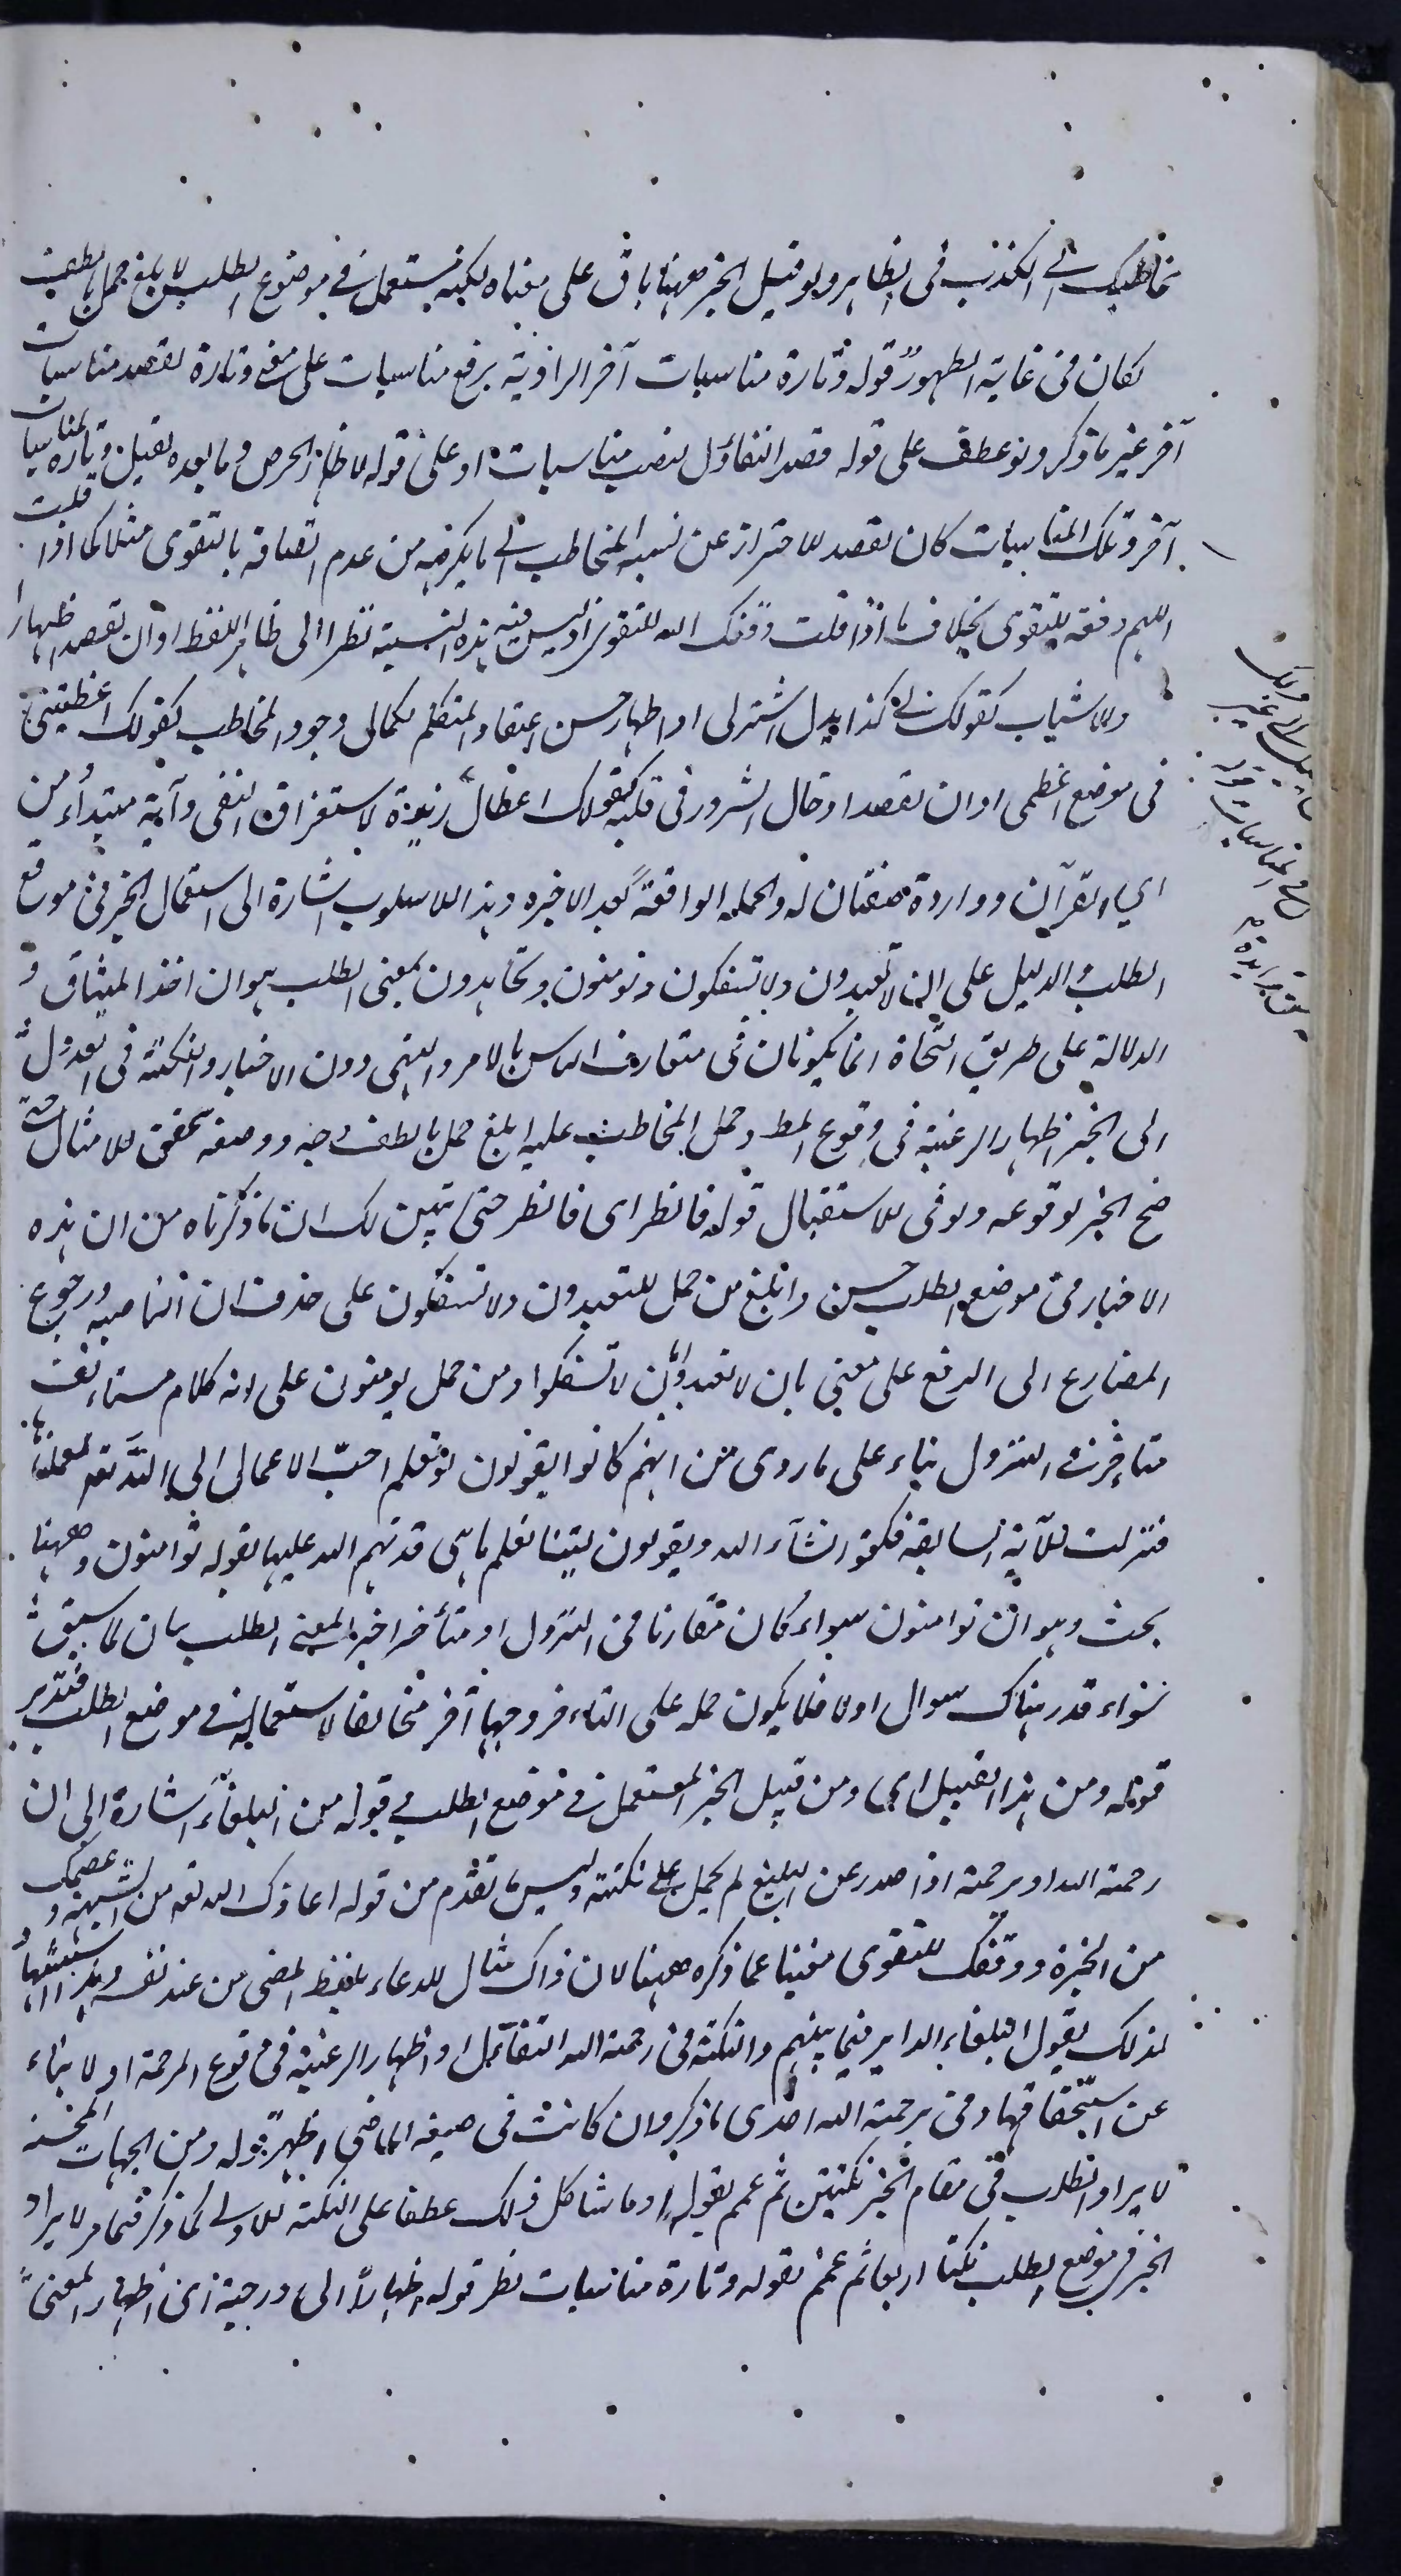 مخاطبك الى الكذب فى الظاهر ولو قيل الخبر ههنا باق على معناه لكنه مستعمل فى موضوع الطلب لا بلغ حمل بالطف
لكان فى غاية الظهور قوله وتارة مناسبات آخر الرافية برفع مناسبات على وتارة لقصد مناسبات
آخر غير ما ذكر ولو عطف على قوله قصد التفاؤل لنصب مناسبات او على قوله لاظهار الحرص وما بعده لقيل وتارة لمناسبات
آخر وتلك المناسبات كان لقصد للاحتراز عن نسبة المخاطب الى ما يكرهه من عدم اتصافه بالتقوى مثلا كما اذا قلت
اللهم وفقه للتقوى بخلاف ما اذا قلت وفقك الله للتقوى اذ ليس فيه هذه النسبة نظرا الى ظاهر اللفظ او ان تقصد اظهارا
ولا شياب كقولك لى كذا بدل اشتر لى او اظهار حسن اعتقاد المتكلم لكمال وجود المخاطب كقولك اعطيتنى
فى موضع اعطنى او ان تقصد ادخال السرور فى قلبه كقولك اعطاك زيد لاستغراق النفى وآية مبتدأ من
اى القرآن وواردة صفتان له والجملة الواقعة بعد الاخيرة وهذا الاسلوب اشارة الى استعمال الخبر فى موقع
الطلب والدليل على ان لا تعبدون ولا تسفكون وتومنون وتجاهدون بمعنى الطلب هو ان اخذ الميثاق و
الدلالة على طريق النجاة انما يكونان فى متعارف الناس بالامر والنهى دون الاخبار والنكتة فى العدول
الى الخبر اظهار الرغبة فى وقوع المط وحمل المخاطب عليه ابلغ حمل بالطف وجه ووصفه بحقق للامثال حتى
صح الخبر بوقوعه ولو فى الاستقبال قوله فانظر اى فانظر حتى تبين لك ان ما ذكرناه من ان هذه
الاخبار فى موضع الطلب حسن وابلغ من حمل لا تعبدون ولا تسفكون على حذف ان الناصبة ورجوع
المضارع الى الرفع على معنى بان لا تعبدوا وبان لا تسفكوا ومن حمل يومنون على انه كلام مستأنف
متاخر فى النزول بناء على ما روى من انهم كانوا يقولون لو نعلم احبّ الاعمال الى الله تعه لعملناها
فنزلت الآية السابقة فمكثوا ما شاء الله ويقولون ليتنا نعلم ما هى فدلهم الله عليها بقوله تؤمنون وههنا
بحث وهو ان تؤمنون سواء كان مقارنا فى النزول او متأخرا خبر بمعنى الطلب بيان لما سبق
سواء قدر هناك سوال اولا فلا يكون حمله على الثانى وجها آخر مخالفا لاستعماله فى موضع الطلب فتدبر
قوله ومن هذا القبيل اى ومن قبيل الخبر المستعمل فى موضع الطلب فى قوله من البلغاء اشارة الى ان
رحمة الله او يرحمه اذا صدر عن البليغ لم يحمل على نكتة وليس ما تقدم من قوله اعاذك الله تعه من الشبهة وعصمك
من الحيرة ووفقك للتقوى مغنيا عما ذكره ههنا لان ذاك مثال للدعاء بلفظ المضى من عند نفسه وهذا استشهاد
لذلك بقول البلغاء الداير فيما بينهم والنكتة فى رحمة الله التفاؤل او اظهار الرغبة فى وقوع الرحمة او لا بناء
عن استحقاقها وفى يرحمه الله احدى ما ذكر وان كانت فى صيغة الماضى اظهر قوله ومن الجهات المحسنة
لايراد الطلب فى مقام الخبر نكتتين ثم عمم بقوله وما شاكل ذلك عطفا على النكتة الاولى كما ذكر فيما مر لايراد
الخبر فى موضع الطلب نكتا اربعا ثم عمم بقوله وتارة مناسبات نظر قوله اظهارا الى درجة اى اظهار المعنى